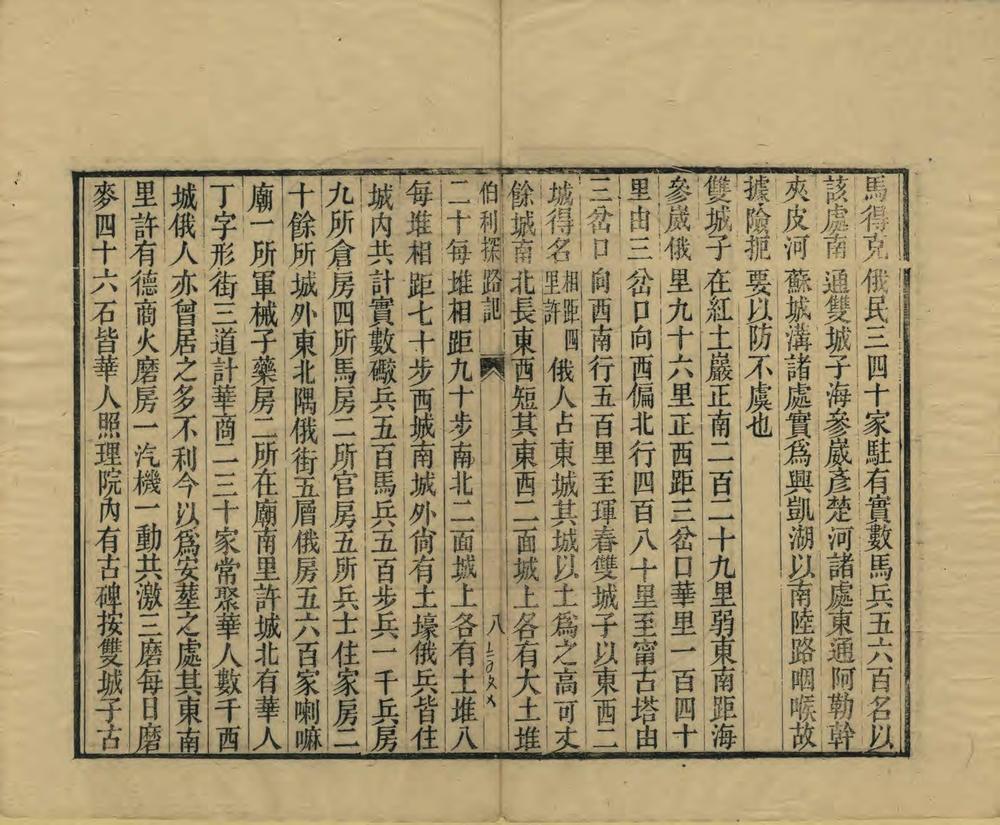 馬得克俄民三四十家駐有實數馬兵五六百名以
該處南通雙城子海參崴彥楚河諸處東通阿勒幹
夾皮河蘇城溝諸處實爲興凱湖以南陸路咽喉故
據險扼要以防不虞也
雙城子在紅土巖正南二百二十九里弱東南距海
參崴俄里九十六里正西距三岔口華里一百四十
里由三岔口向西偏北行四百八十里至甯古塔由
三岔口向西南行五百里至琿春雙城子以東西二
城得名相距四里許俄人占東城其城以土爲之高可丈
餘城南北長東西短其東西二面城上各有大土堆
伯利探路記 八
二十每堆相距九十步南北二面城上各有土堆八
每堆相距七十步西城南城外尙有土壕俄兵皆住
城內共計實數礮兵五百馬兵五百步兵一千兵房
九所倉房四所馬房二所官房五所兵士住家房二
十餘所城外東北隅俄街五層俄房五六百家喇嘛
廟一所軍械子藥房二所在廟南里許城北有華人
丁字形街三道計華商二三十家常聚華人數千西
城俄人亦曾居之多不利今以爲安塟之處其東南
里許有德商火磨房一汽機一動共激三磨每日磨
麥四十六石皆華人照理院內有古碑按雙城子古